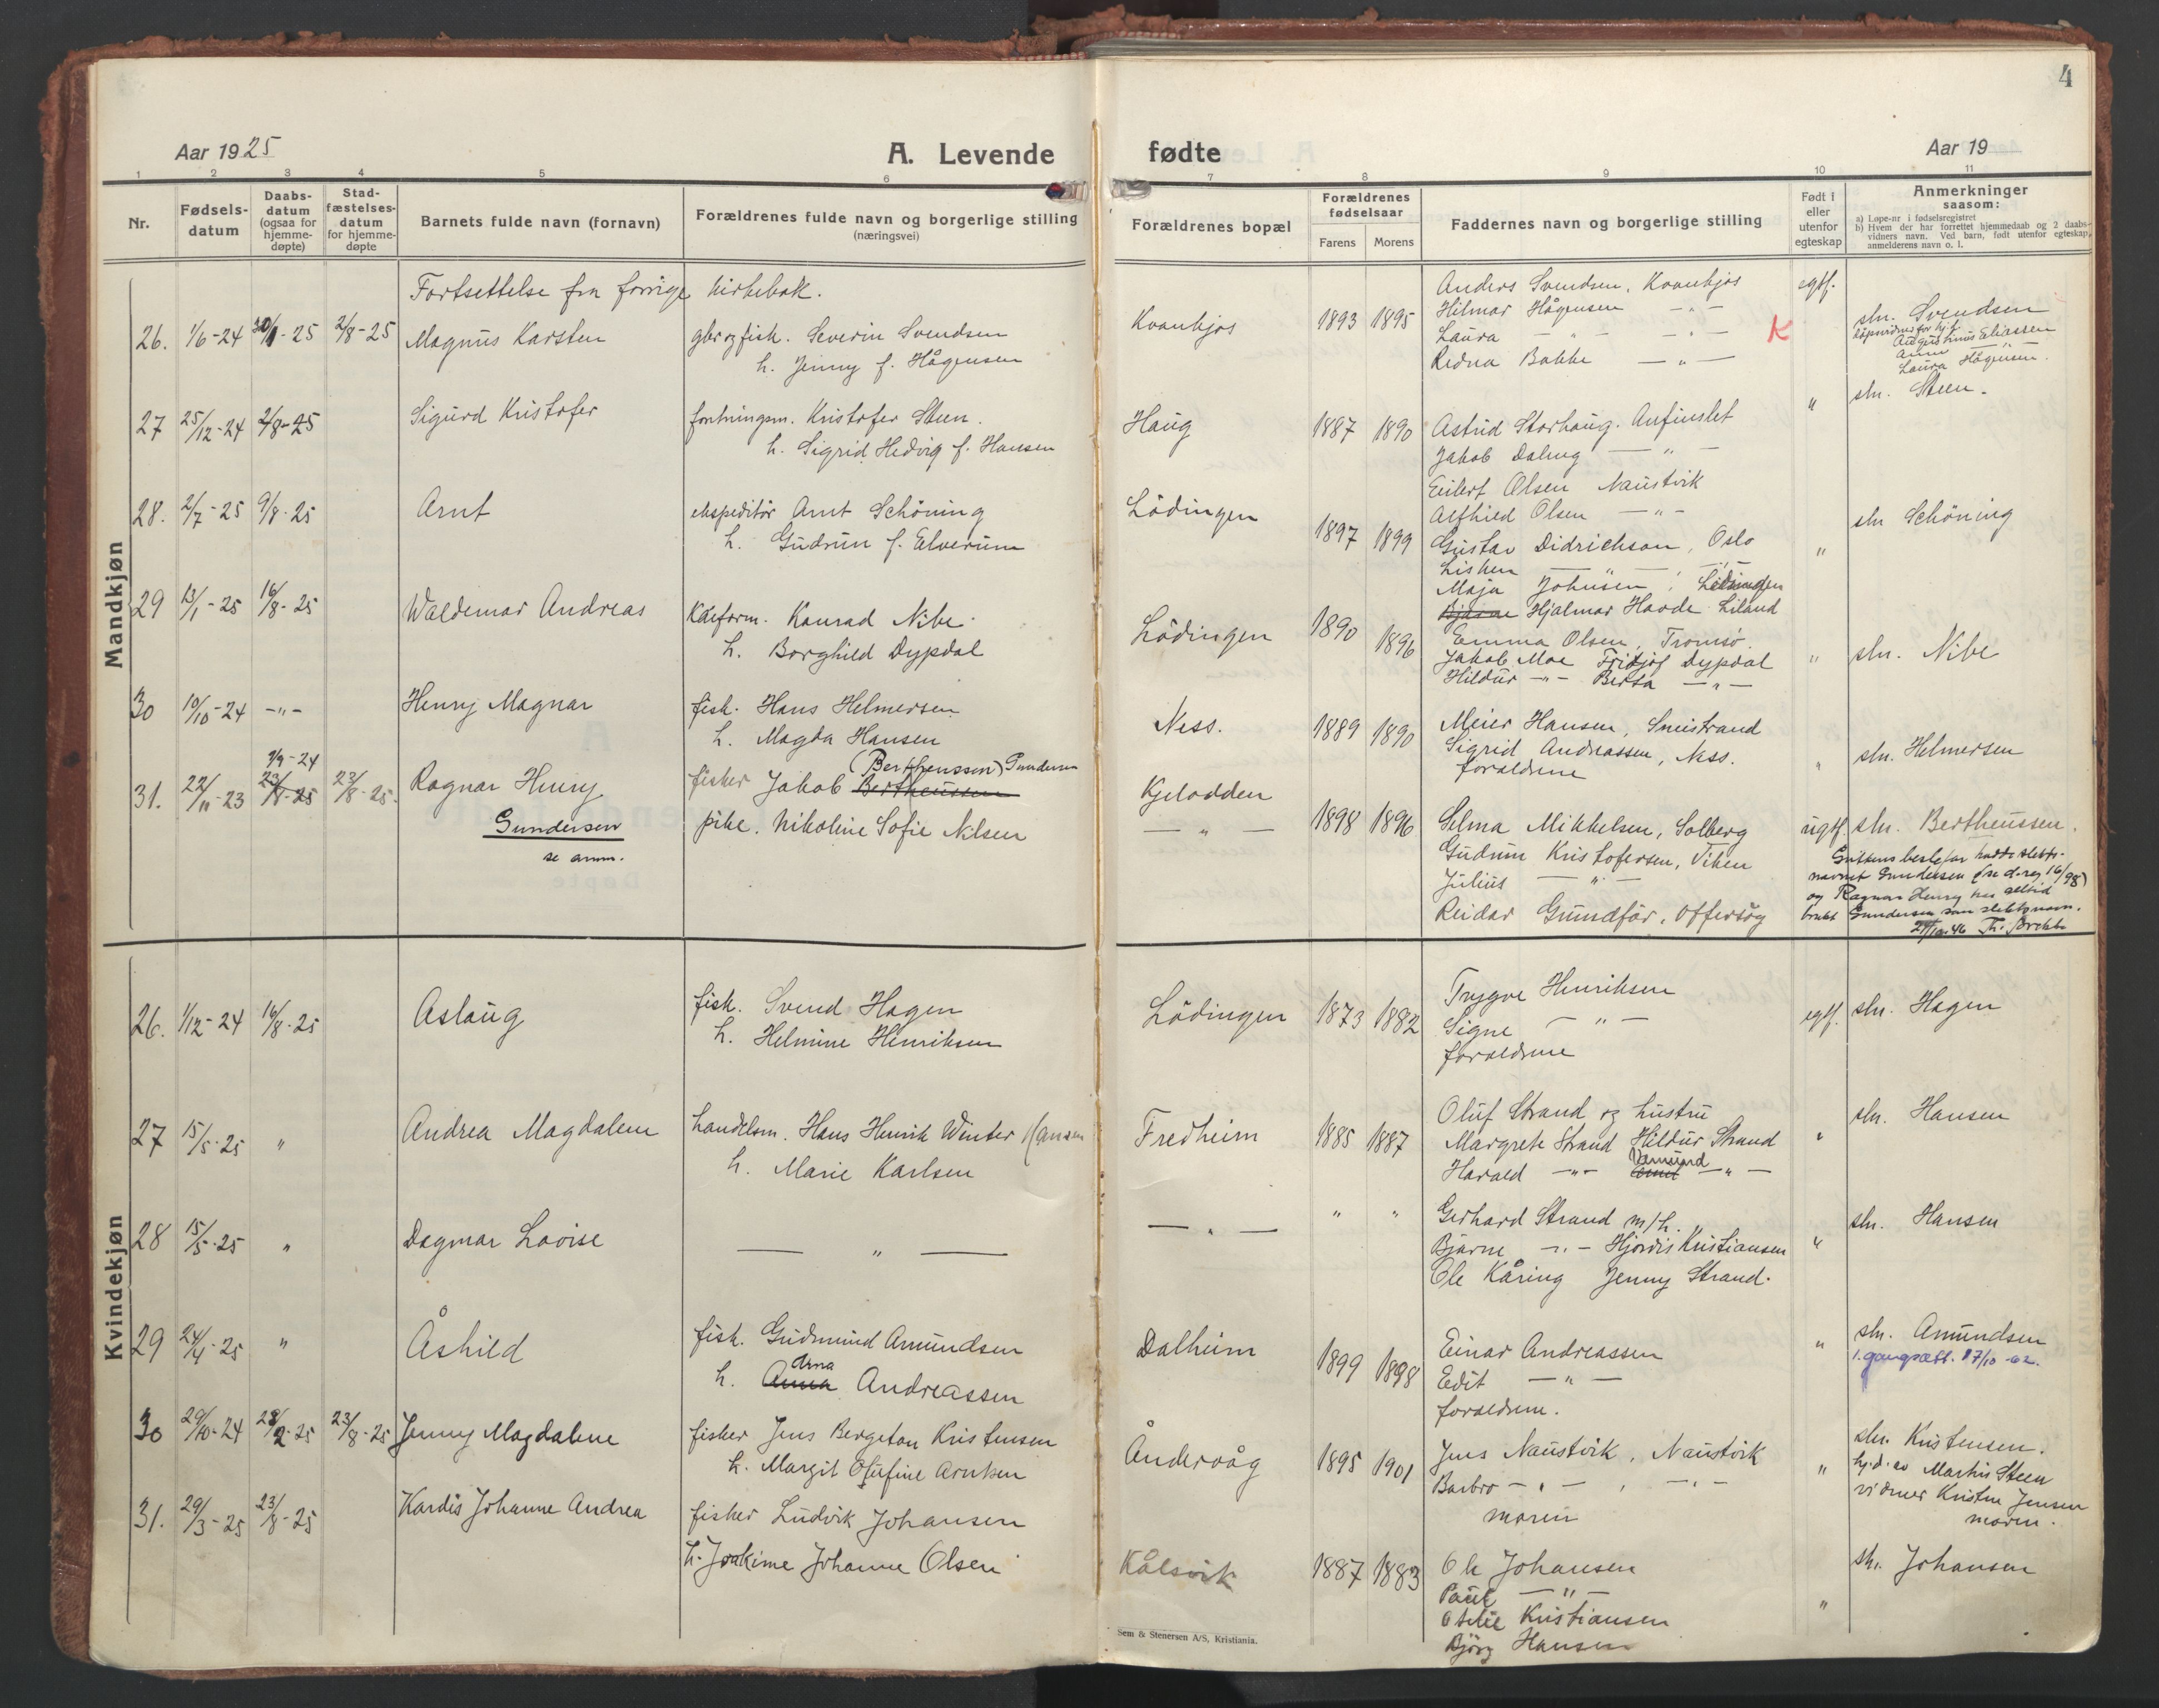 4
Aar 1925
A. Levende
fødte
Aar 19
1 2 3 4 5 6 7 8 9 10 11
Nr.
Fødsels-
datum
Daabs-
datum
(ogsaa for
hjemme-
døpte)
Stad-
fæstelses-
datum
for hjemme-
døpte
Barnets fulde navn (fornavn)
Forældrenes fulde navn og borgerlige stilling
(næringsvei)
Forældrenes bopæl
Forældrenes
fødselsaar
Farens Morens
Faddernes navn og borgerlige stilling
Født i
eller
utenfor
egteskap
Anmerkninger
saasom:
a) Løpe-nr i fødselsregistret
b) Hvem der har forrettet hjemmedaab og 2 daabs-
vidners navn. Ved barn, født utenfor egteskap,
anmelderens navn o. l.
Mandkjøn
Fortsettelse fra forrige kirkebok.
26. 1/6-24 30/1-25 2/8-25 Magnus Karsten
gbr og fisk. Severin Svendsen
h. Jenny f. Hågensen
Kvankjos 1893 1895
Anders Svendsen, Kvankjos
Hilmar Hågensen - " -
Laura - " - - " -
Bakke - " -
K
egtf.
sln. Svendsen
Augustinus Eliassen
Anna - " -
Laura Hågensen.
27 25/12-24 2/8-25 Sigurd Kristofer
Kristofer Steen.
h. Sigrid Hedvig f. Hansen
Haug 1887 1890
Astrid Storhaug. Anfinslet
Jakob Dalung - " -
Eilert Olsen Naustvik
Alfhild Olsen - " -
"
sln. Steen.
28. 2/7-25 9/8-25 Arnt
ekspeditör Arnt Schöning
h. Gudrun f. Elverum
Lödingen 1897 1899
Gustav Didrichson, Oslo
Lisken - " - - " -
Maja Johnsen, Lödingen
"
sln Schöning
29 13/1-25 16/8-25 Waldemar Andreas
Konrad Nibe
h. Borghild Dypdal
Lödingen 1890 1896
Bjarne Hjalmar Havde Liland
Emma Olsen, Tromsø
Jakob Moe Fridjof Dypdal
Hildur - " - Berta - " -
"
sln. Nibe
30 10/10-24 - " - Henry Magnar
fisk. Hans Helmersen
h. Magda Hansen
Ness. 1889 1890
Meier Hansen, Sneistrand
Sigrid Andreassen, Ness.
foraldrene
"
sln. Helmersen
9/9-24
31. 22/11-23 23/8-25 23/8-25. Ragnar Henry
Gundersen
se anm.
(Bertheussen) Gundersen
fisker Jakob Bertheussen
pike. Nikoline Sofie Nilsen
Kjelodden
- " - 1898 1896
Selma Mikkelsen, Solberg
Gudrun Kristofersen, Viken
Julius - " -
Reidar Gundfär, Offersög
ugtf.
sln. Bertheussen.
Guttens bestefar hadde slekts-
navnet Gundersen (se d.reg. 16/98)
og Ragnar Henry har alltid
brukt Gundersen som slektsnavn.
Kvindekjøn
26. 1/12-24 16/8-25 Aslaug
fisk. Svend Hagen
h. Helmine Henriksen
Lödingen 1873 1882
Trygve Henriksen
Signe - " -
foraldrene
egtf.
sln. Hagen
27 15/5-25 " Andrea Magdalene
handelsm. Hans Henrik Winter Hansen
h. Marie Karlsen
Fredheim 1885 1887
Oluf Strand og hustru
Margrete Strand Hildur Strand
Harald - " - Vemund - " -
"
sln. Hansen
28 15/5-25 " Dagmar Lovise
- " -
- " - " "
Gerhard Strand m/h.
Bjarne - " - Hjördis Kristiansen
Ole Kåring Jenny Strand.
"
sln. Hansen
29 24/4-25 " Åshild
fisk. Gudmund Amundsen
h. Anna Arna Andreassen
Dalheim 1899 1898
Einar Andreassen
Edit - " -
foraldrene.
"
sln. Amundsen
1. gangsatt. 17/10-62.
30 29/10-24 28/2-25 23/8-25 Jenny Magdalene
fisker Jens Bergeton Kristensen
h. Margit Olufine Arntsen
Åndervåg 1895 1901
Jens Naustvik, Naustvik
Barbro - " - , - " -
moren
"
sln. Kristensen.
hj.d. av Martin Steen
vidner Kristine Jensen
moren.
31. 29/3-25 23/8-25 Kardis Johanne Andrea
fisker Ludvik Johansen
h. Joakime Johanne Olsen
Kålsvik 1887 1883
Ole Johansen
Paul - " -
Otelie Kristiansen
Björg Hansen
"
sln. Johansen
Sem & Stenersen A/S, Kristiania.